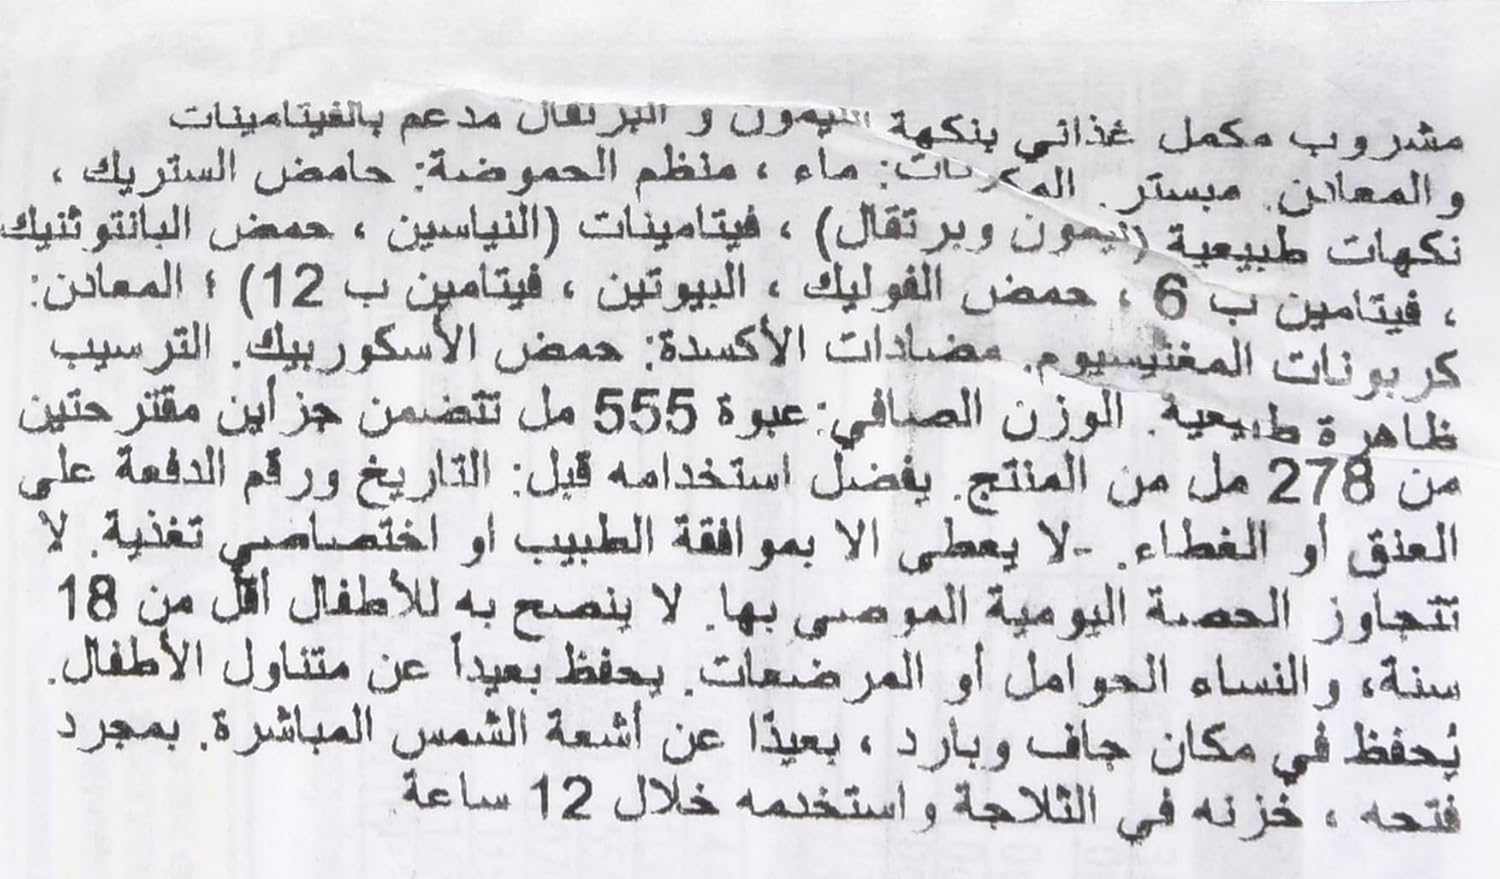 مشروب مكمل غذائي بنكهة الليمون و البرتقال مدعم بالفيتامينات
والمعادن. مبستر. المكونات: ماء ، منظم الحموضة: حامض الستريك ،
نكهات طبيعية (ليمون وبرتقال) ، فيتامينات (النياسين ، حمض البانتوثنيك
، فيتامين ب 6 ، حمض الفوليك ، البيوتين ، فيتامين ب 12) ؛ المعادن:
كربونات المغنيسيوم. مضادات الأكسدة: حمض الأسكوربيك. الترسيب
ظاهرة طبيعية. الوزن الصافي: عبوة 555 مل تتضمن جزأين مقترحتين
من 278 مل من المنتج. يفضل استخدامه قبل: التاريخ ورقم الدفعة على
العنق أو الغطاء. -لا يعطى الا بموافقة الطبيب او اختصاصي تغذية. لا
تتجاوز الحصة اليومية الموصى بها. لا ينصح به للأطفال أقل من 18
سنة، والنساء الحوامل أو المرضعات. يحفظ بعيدأ عن متناول الأطفال.
يُحفظ في مكان جاف وبارد ، بعيدًا عن أشعة الشمس المباشرة. بمجرد
فتحه ، خزنه في الثلاجة واستخدمه خلال 12 ساعة